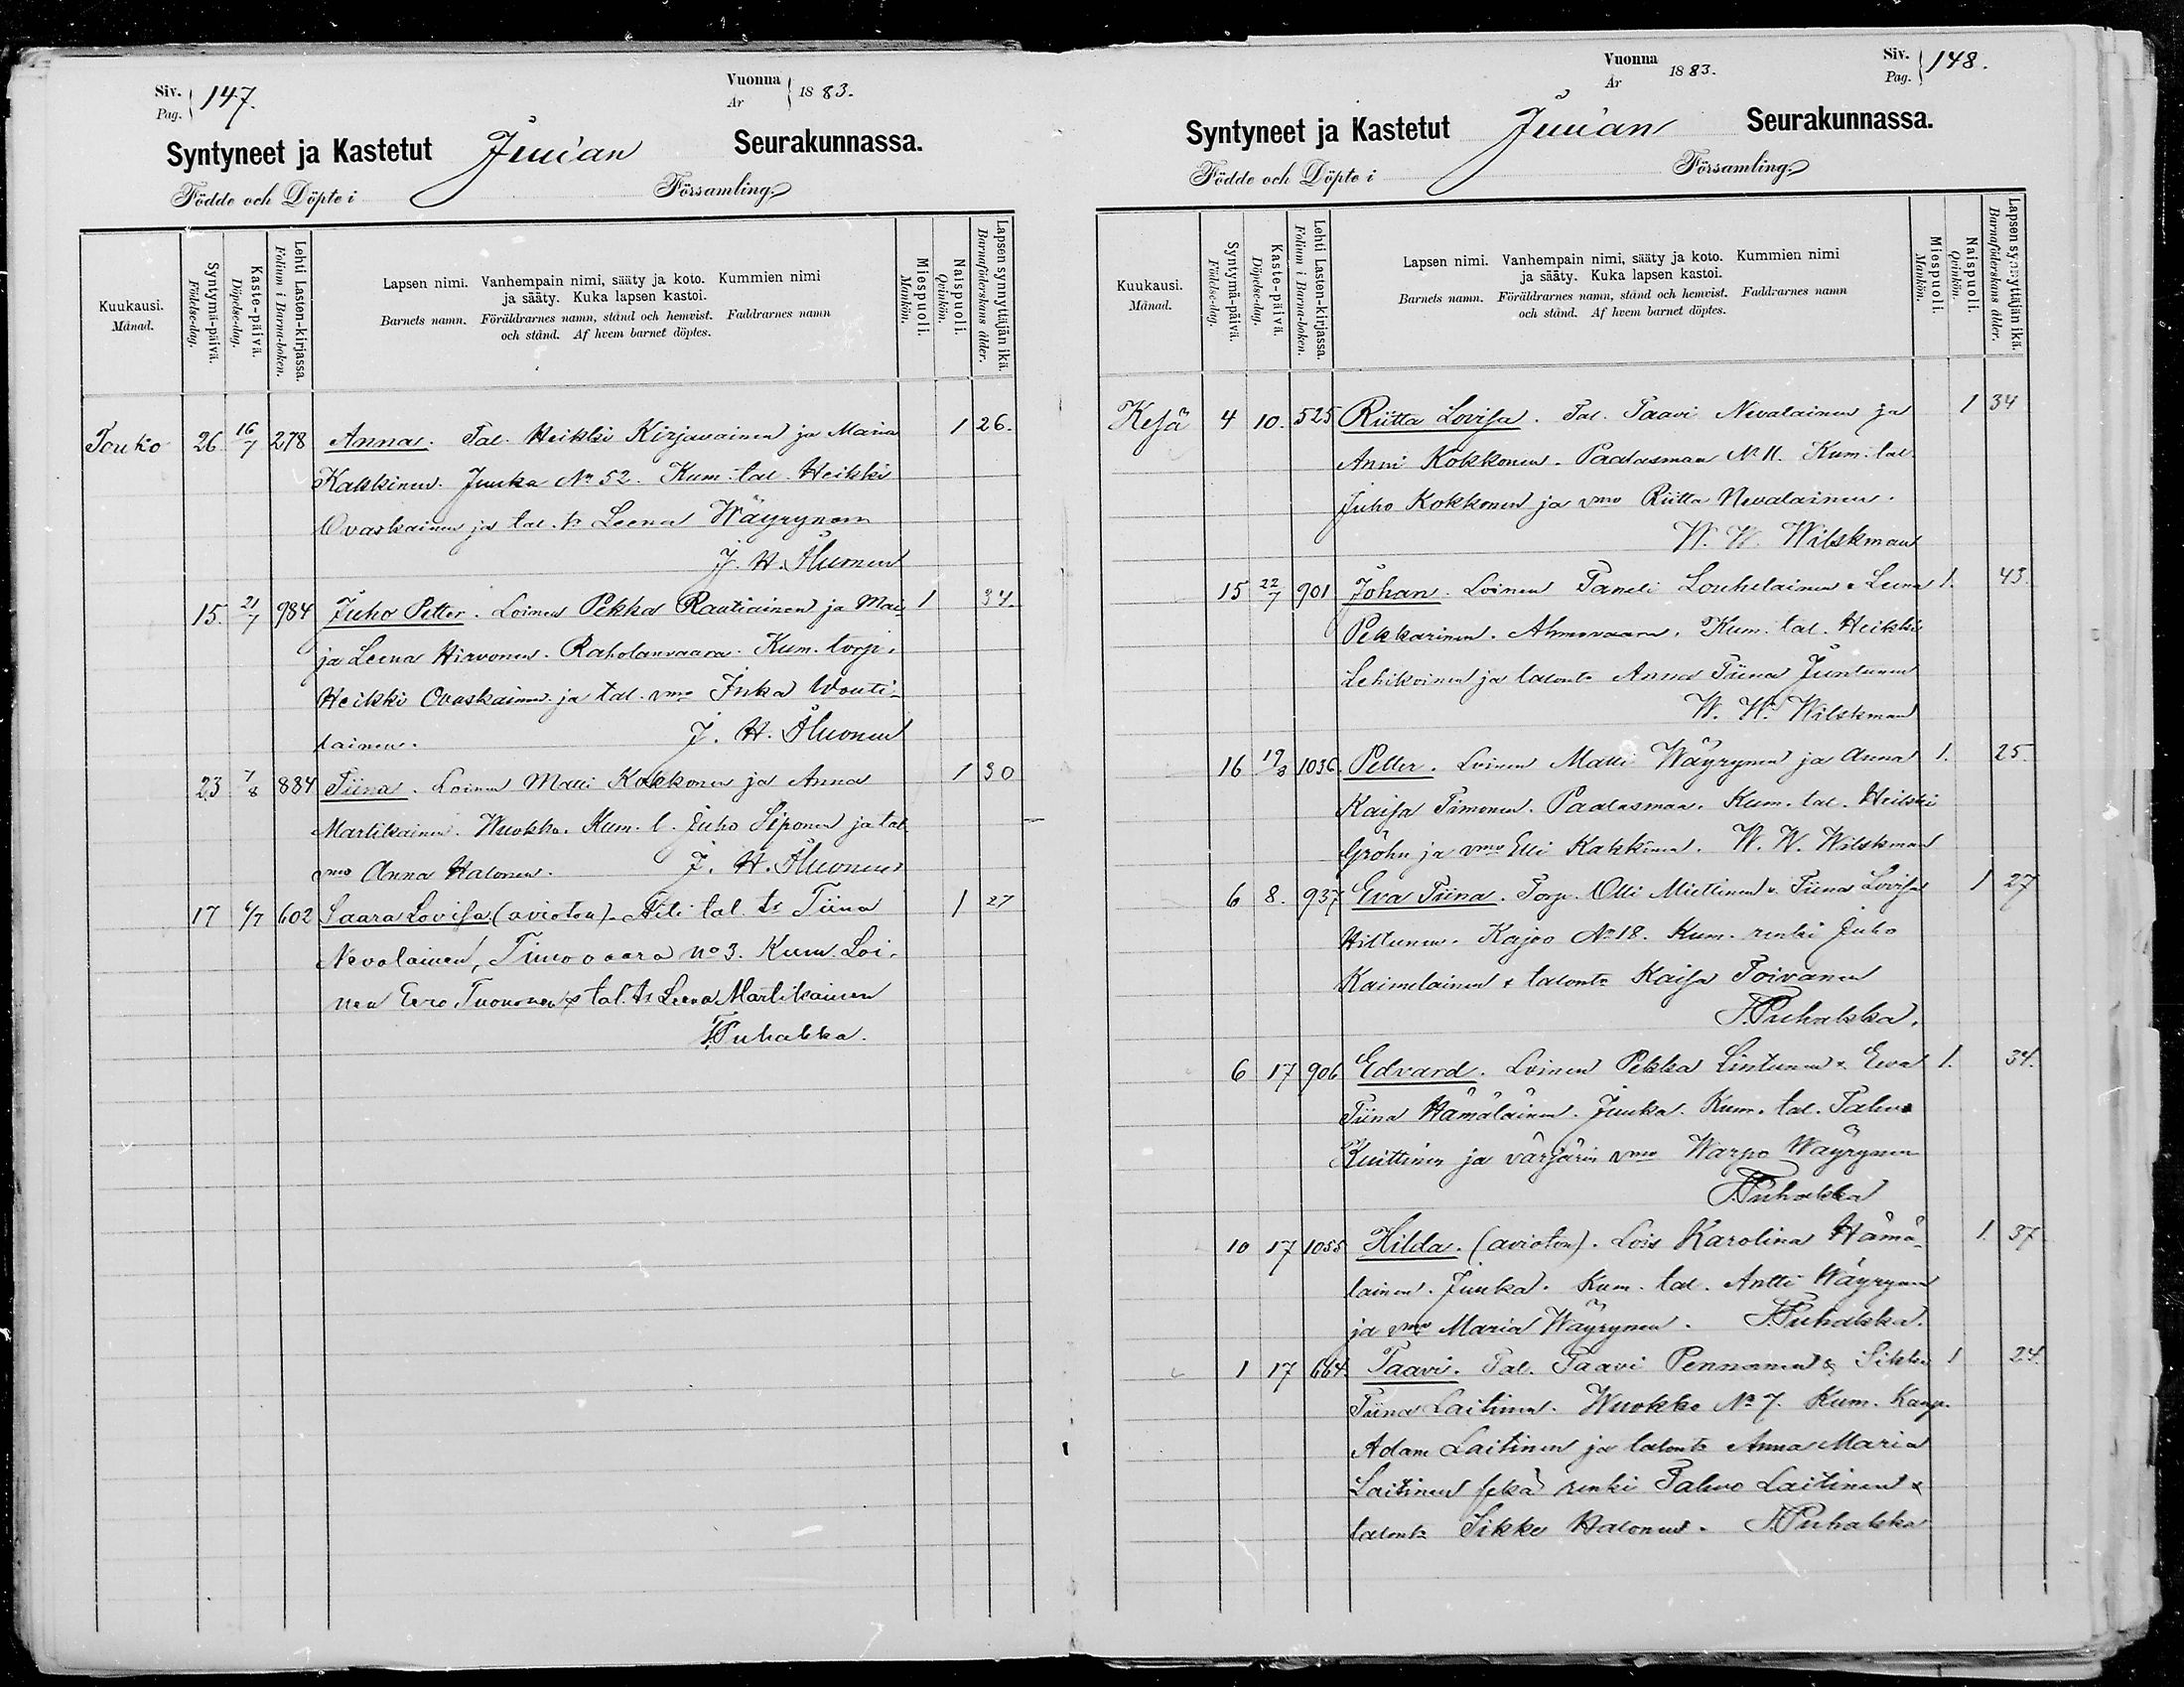 Siv. 147.
Pag.
Vuonna 1883.
År
Syntyneet ja Kastetut Juuan Seurakunnassa.
Födde och Döpte i Församling.
Kuukausi.
Månad.
Syntymä-päivä.
Födelse-dag.
Kaste-päivä.
Döpelse-dag.
Lehti Lasten-kirjassa.
Folium i Barna-boken.
Lapsen nimi. Vanhempain nimi, sääty ja koto. Kummien nimi
ja sääty. Kuka lapsen kastoi.
Barnets namn. Föräldrarnes namn, stånd och hemvist. Faddrarnes namn
och stånd. Af hvem barnet döptes.
Miespuoli.
Mankön.
Naispuoli.
Qvinkön.
Lapsen synnyttäjän ikä.
Barnaföderskans ålder.
Touko 26 16/7 278 Anna. Tal. Heikki Kirjavainen ja Maria 1 26.
Kakkinen. Juuka No 52. Kum. tal. Heikki
Ovaskainen ja tal. tr Leena Wäyrynen
J. H.
15. 21/7 984 Juho Petter. Loinen Pekka Rautiainen ja Mai- 1 34.
ja Leena Hirvonen. Raholanvaara. Kum. torp.
Heikki Ovaskainen ja tal. vmo Inka Wouti-
lainen. J. H.
23 7/8 884 Tiina. Loinen Matti Kokkonen ja Anna 1 30
Martikainen. Wuokko. Kum. l. Juho Siponen ja tal.
vmo Anna Halonen. J. H.
17 6/7 602 Saara Lovisa (avioton). Äiti tal. tr Tiina 1 27
Nevalainen, Timovaara no 3. Kum. Loi-
nen Eero Tuononen & tal. tr Leena Martikainen
T. Puhakka.
Vuonna 1883.
År
Siv. 148.
Pag.
Syntyneet ja Kastetut Juuan Seurakunnassa.
Födde och Döpte i Församling.
Kuukausi.
Månad.
Syntymä-päivä.
Födelse-dag.
Kaste-päivä.
Döpelse-dag.
Lehti Lasten-kirjassa.
Folium i Barna-boken.
Lapsen nimi. Vanhempain nimi, sääty ja koto. Kummien nimi
ja sääty. Kuka lapsen kastoi.
Barnets namn. Föräldrarnes namn, stånd och hemvist. Faddrarnes namn
och stånd. Af hvem barnet döptes.
Miespuoli.
Mankön.
Naispuoli.
Qvinkön.
Lapsen synnyttäjän ikä.
Barnaföderskans ålder.
Kesä 4 10. 525 Riitta Lovisa. Tal. Taavi Nevalainen ja 1 34
Anni Kokkonen. Paalasmaa No 11. Kum. tal.
Juho Kokkonen ja vmo Riitta Nevalainen.
W. W. Wilskman
15 22/7 901 Johan. Loinen Taneli Louhelainen & Leena 1. 43.
Pekkarinen. Ahmovaara. Kum. tal. Heikki
Lehikoinen ja talontr Anna Tiina Juntunen
W. W. Wilskman
16 19/8 1036. Petter. Loinen Matti Wäyrynen ja Anna 1. 25.
Kaisa Timonen. Paalasmaa. Kum. tal. Heikki
Gröhn ja vmo Elli Kakkinen. W. W. Wilskman
6 8. 937 Eva Tiina. Torp. Olli Miettinen & Tiina Lovisa 1 27
Hiltunen. Kajoo No 18. Kum. renki Juho
Kaimelainen & talontr Kaisa Toivanen
T. Puhakka.
6 17 906 Edvard. Loinen Pekka Lintunen & Eeva 1. 34.
Tiina Hämäläinen. Juuka. Kum. tal. Tahvo
Kuittinen ja värjärin vmo Warpo Wäyrynen
T. Puhakka
10 17 1055 Hilda. (avioton). Lois Karolina Hämä- 1. 37
läinen. Juuka. Kum. tal. Antti Wäyrynen
ja vmo Maria Wäyrynen. T. Puhakka.
1 17 664. Taavi. Tal. Taavi Pennanen & Sikke 1 24.
Tiina Laitinen. Wuokko No 7. Kum. Kaup.
Adam Laitinen ja talontr Anna Maria
Laitinen sekä renki Tahvo Laitinen &
talontr Sikke Halonen. T. Puhakka